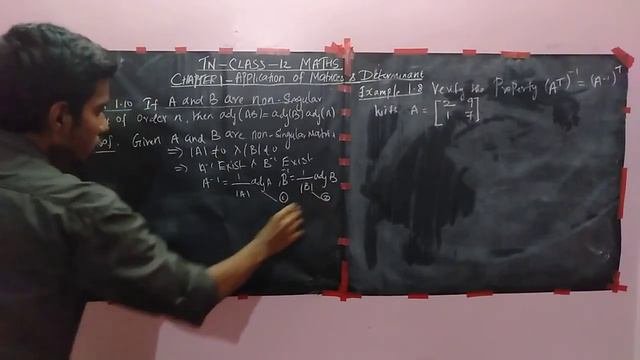 TN-CLASS-12 MATHS
CHAPTER 1-Application of Matrices & Determinant
1.10 If A and B are non-Singular
of order n, then adj(AB)=adj(B)adj(A)
Given A and B are non-Singular Matrix
⇒ |A| ≠ 0 & |B| ≠ 0
⇒ A⁻¹ Exist & B⁻¹ Exist
A⁻¹ = 1/|A| adj A, B⁻¹ = 1/|B| adj B
① ②
Example 1.8 Verify the Property (Aᵀ)⁻¹ = (A⁻¹)ᵀ
with A = [2 9
1 7]